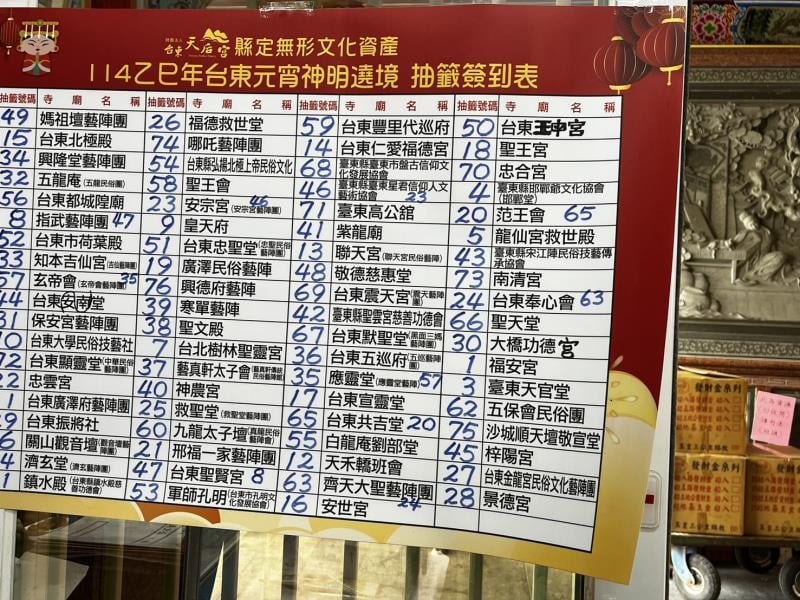 財團法人
台東天后宮 縣定無形文化資產
114乙巳年台東元宵神明遶境 抽籤簽到表
抽籤號碼 寺廟名稱 抽籤號碼 寺廟名稱 抽籤號碼 寺廟名稱 抽籤號碼 寺廟名稱
49 媽祖壇藝陣團
15 台東北極殿
34 興隆堂藝陣團
32 五龍庵(五龍民俗團)
56 台東都城隍廟
8 指武藝陣團 47
52 台東市荷葉殿
33 知本吉仙宮(吉仙藝陣團)
57 玄帝會(玄帝會藝陣團) 35
44 台東安南堂
31 保安宮藝陣團
10 台東大學民俗技藝社
72 台東顯靈堂(中華民俗藝陣團)
22 忠雲宮
1 台東廣澤府藝陣團
29 台東振將社
6 關山觀音壇(觀音壇藝陣團)
4 濟玄堂(濟玄藝陣團)
1 鎮水殿(台東縣鎮水殿慈善功德會)
26 福德救世堂
74 哪吒藝陣團
54 台東縣弘揚北極上帝民俗文化
58 聖王會
23 安宗宮(安宗宮藝陣團) 46
9 皇天府
51 台東忠聖堂(忠聖民俗藝陣團)
19 廣澤民俗藝陣
76 興德府藝陣
39 寒單藝陣
38 聖文殿
7 台北樹林聖靈宮
37 藝真軒太子會(藝真軒傳統民俗藝陣館)
40 神農宮
25 救聖堂(救聖堂藝陣團)
60 九龍太子壇(真龍民俗藝陣會)
21 邢福一家藝陣團
47 台東聖賢宮 8
53 軍師孔明(台東市孔明文化發展協會)
59 台東豐里代巡府
14 台東仁愛福德宮
68 臺東縣臺東市盤古信仰文化發展協會
46 臺東縣臺東星君信仰人文藝術協會 23
71 臺東高公舘
41 紫龍廟
13 聯天宮(聯天宮民俗藝陣)
48 敬德慈惠堂
69 台東震天宮(震天藝陣團)
42 臺東縣聖雲宮慈善功德會
67 台東默聖堂(黑面三媽藝陣團)
36 台東五巡府(五巡藝陣團)
35 應靈堂(應靈堂藝陣) 57
17 台東宣靈堂
65 台東共吉堂 20
55 白龍庵劉部堂
12 天禾轎班會
63 齊天大聖藝陣團
16 安世宮 24
50 台東王中宮
18 聖王宮
70 忠合宮
4 臺東縣邯鄲爺文化協會(邯鄲堂)
20 范王會 65
5 龍仙宮救世殿
43 臺東縣宋江陣民俗技藝傳承協會
73 南清宮
24 台東奉心會 63
66 聖天堂
30 大橋功德宮
1 福安宮
3 臺東天官堂
62 五保會民俗團
75 沙城順天壇敬宣堂
45 梓陽宮
27 台東金龍宮民俗文化藝陣團
28 景德宮
發財金系列
發財金系列
發財金系列